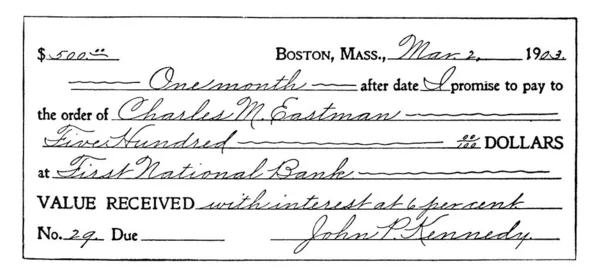 $500.00 BOSTON, MASS., Mar. 2, 1903.
One month after date I promise to pay to
the order of Charles M. Eastman
Five Hundred 00/100 DOLLARS
at First National Bank
VALUE RECEIVED with interest at 6 per cent
No. 29. Due John P. Kennedy.